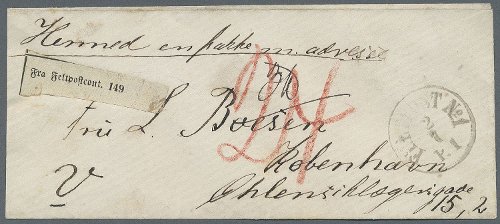 Hermed en pakke m. adresse
Fra Feltpostcont. 149
24
Fru L. Boisen
V
København
Ohlenslægersgade
15, 2